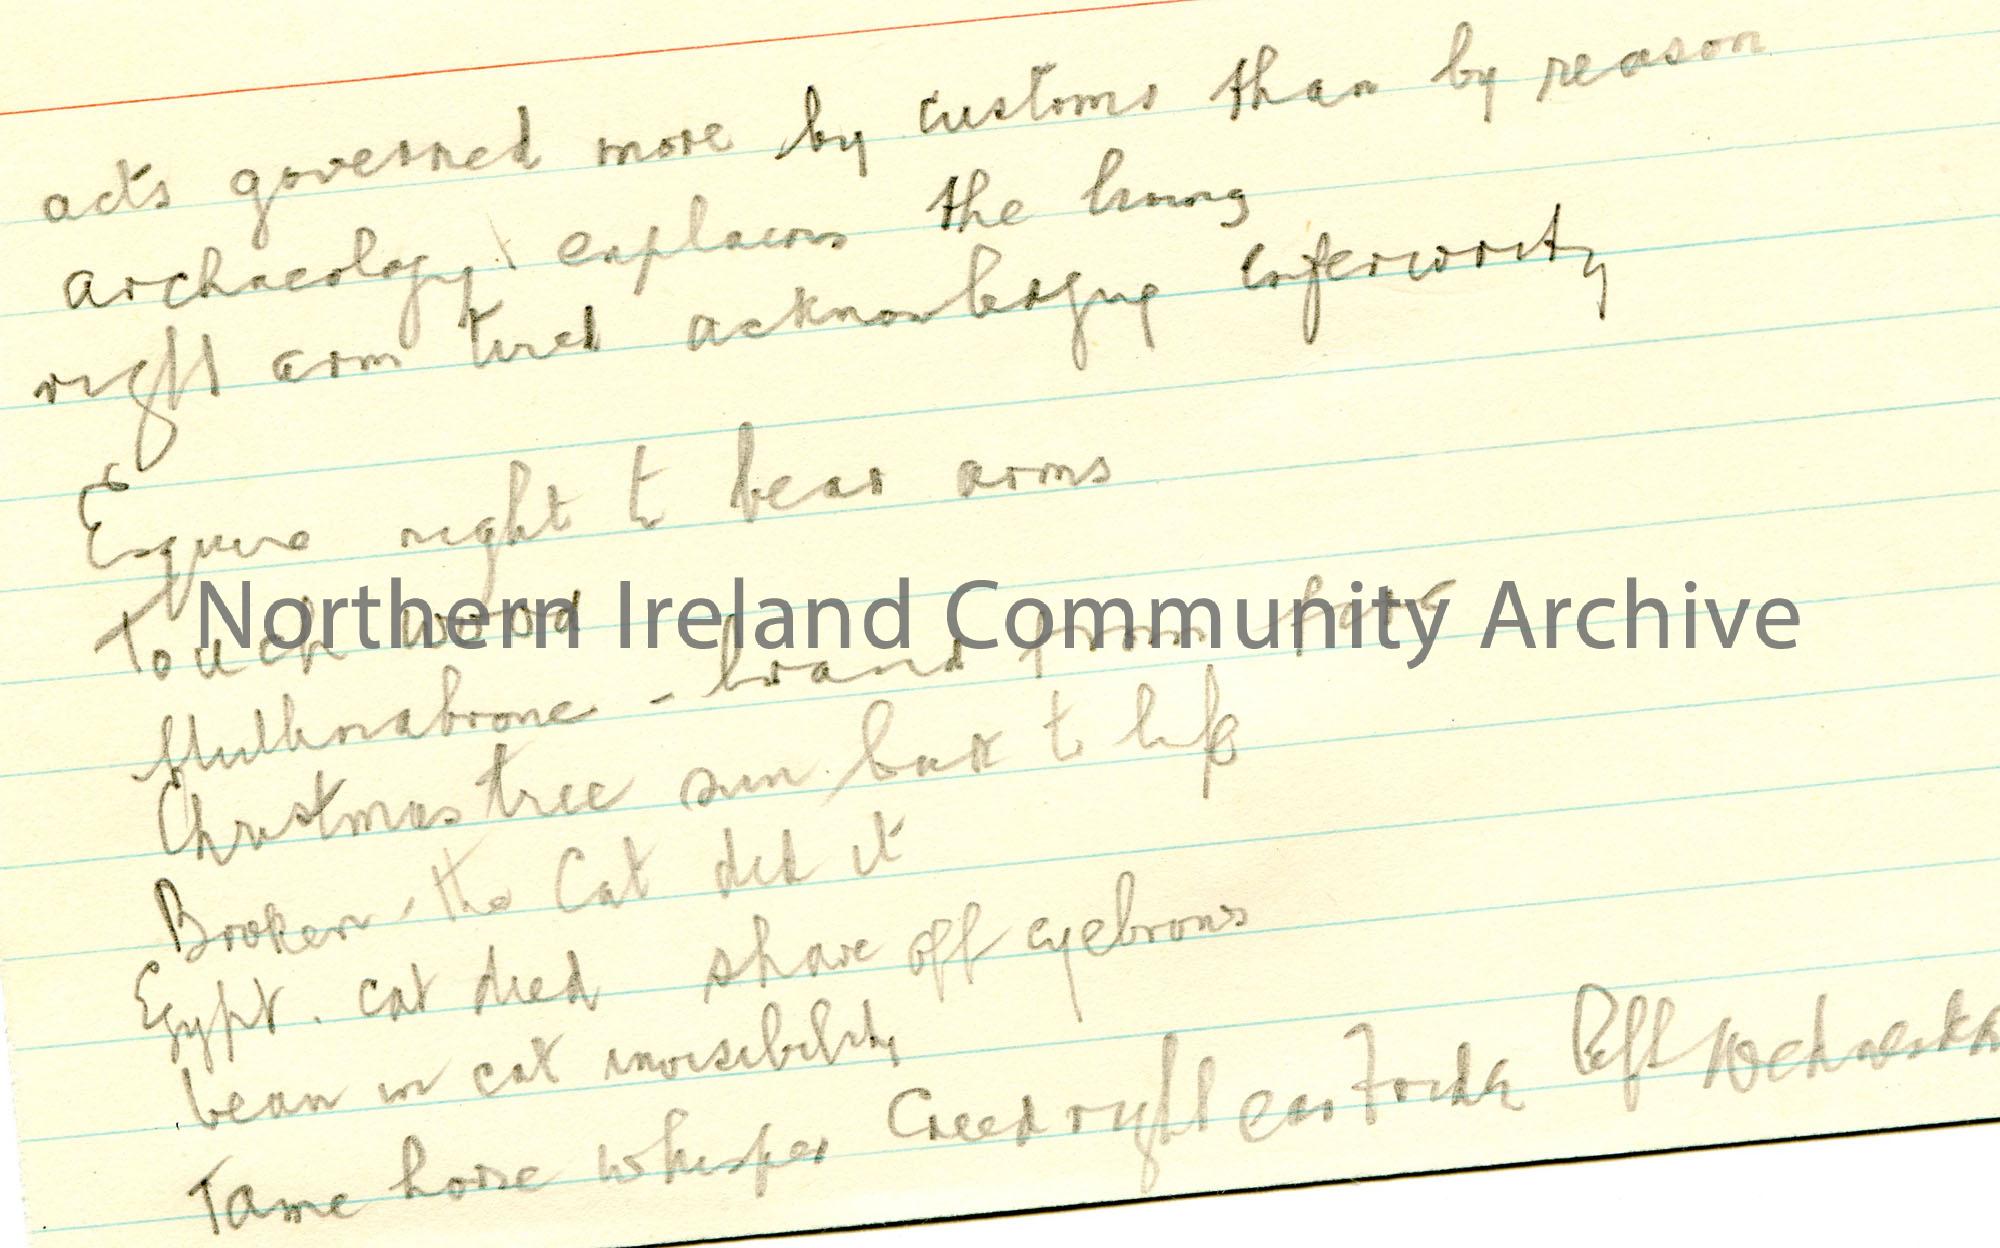 acts governed more by customs than by reason
archaeology explains the living
right arm tired acknowledging inferiority
Esquire right to bear arms
Touch wood
Northern Ireland Community Archive
Mullinabrone - brand from fire
Christmas tree sun back to life
Broken - the Cat did it
Egypt. cat died shave off eyebrows
bean in cat invisibility
Tame horse whisper Creed right ear Friday left Wednesday